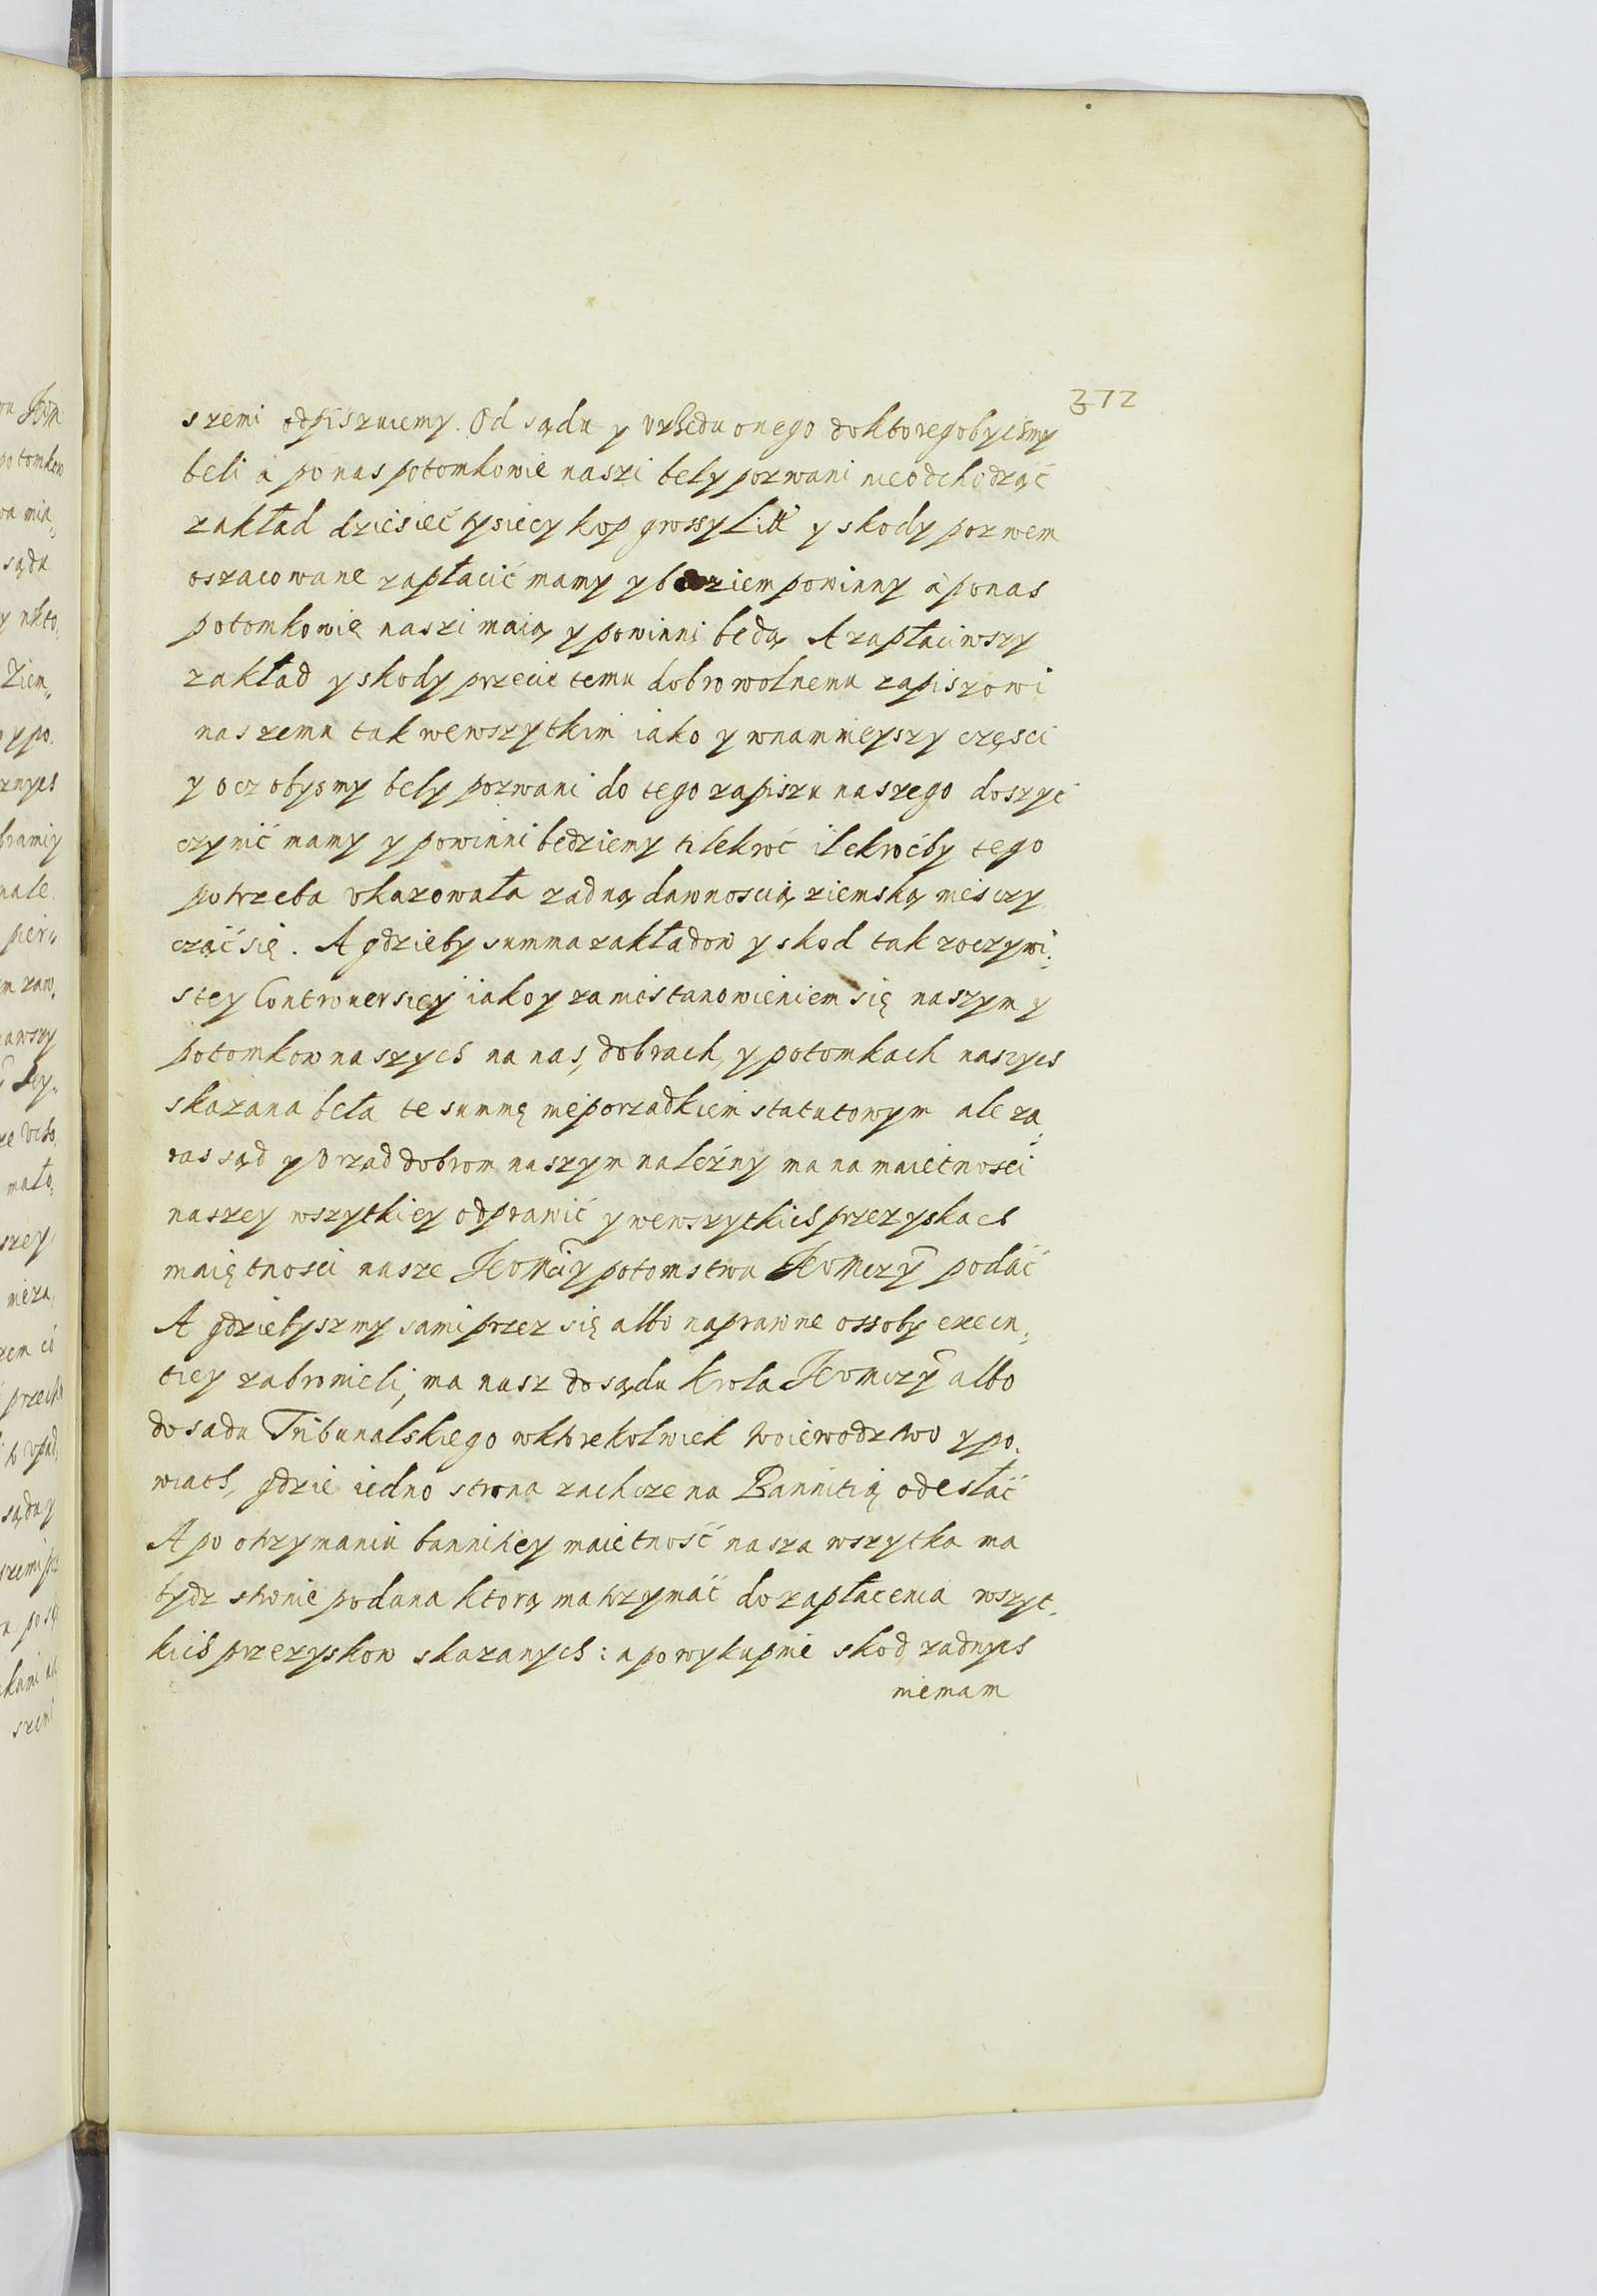 372
szemi odpiszuiemy. Od sądu y vrzędu onego doktoregobychmy
beli à ponas potomkowie naszi bely pozwani nieodchodząć
zakład dziesieć tysiecy kop grossy Litt y skody pozwem
oszacowane zapłacić mamy y bedziem powinny à ponas
potomkowie naszi maią y powinni będą A zapłaciwszy
zakład y skody przecie temu dobrowolnemu zapiszowi
naszemu tak wewszytkim iako y wnamnieyszy częsci
y ocz obysmy bely pozwani do tego zapiszu naszego doszyć
czynić mamy y powinni bedziemy tilekroć ilekroćby tego
potrzeba vkazowała zadną dawnoscią ziemską nieszczy
czać się. A gdzieby summa zakładow y skod tak zoczywi,
stey Controuersiey iako y za niestanowieniem się naszym y
potomkow naszych na nas, dobrach, y potomkach naszych
skazana beła te summę nieporzadkiem statutowym ale za,
ras sąd y Vrzad dobrom naszym należny ma na maietnosci
naszey wszytkiey odprawić y wewszytkich przezyskach
maiętnosci nasze Jeomci y potomstwu Jeomczy podać
A gdziebyszmy sami przez się albo naprawne ossoby execu,
tiey zabronieli, ma nasz do sądu Krola Jeomczy albo
do sadu Tribunalskiego wktorekolwiek woiewodztwo y po,
wiach, gdzie iedno strona zachcze na Bannitią odesłać
A po otrzymaniu bannitiey maietność nasza wszytka ma
bydz stronie podana ktorą ma trzymać do zapłacenia wszyt,
kich przezyskow skazanych: a po wykupnie skod zadnych
niemam